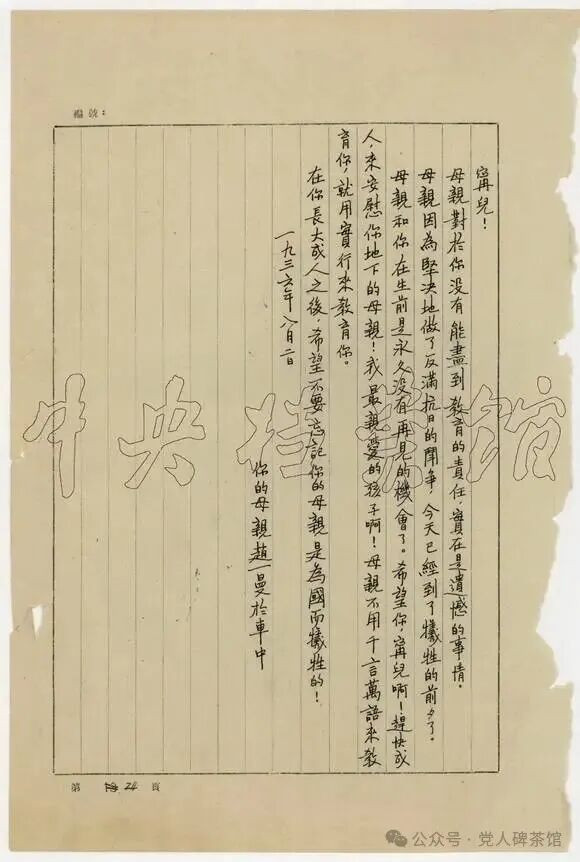 編號：
寗兒！
母親對於你沒有能盡到教育的責任，實在是遺憾的事情。
母親因為堅决地做了反滿抗日的鬥争，今天已經到了犧牲的前夕了。
母親和你在生前是永久没有再見的機會了。希望你，寗兒啊！趕快成
人，來安慰你地下的母親！我最親愛的孩子啊！母親不用千言萬語來教
育你，就用實行來教育你。
在你長大成人之後，希望不要忘記你的母親是為國而犧牲的！
一九三六年八月二日
你的母親趙一曼於車中
中央档案馆
第 24 頁
公众号·党人碑茶馆